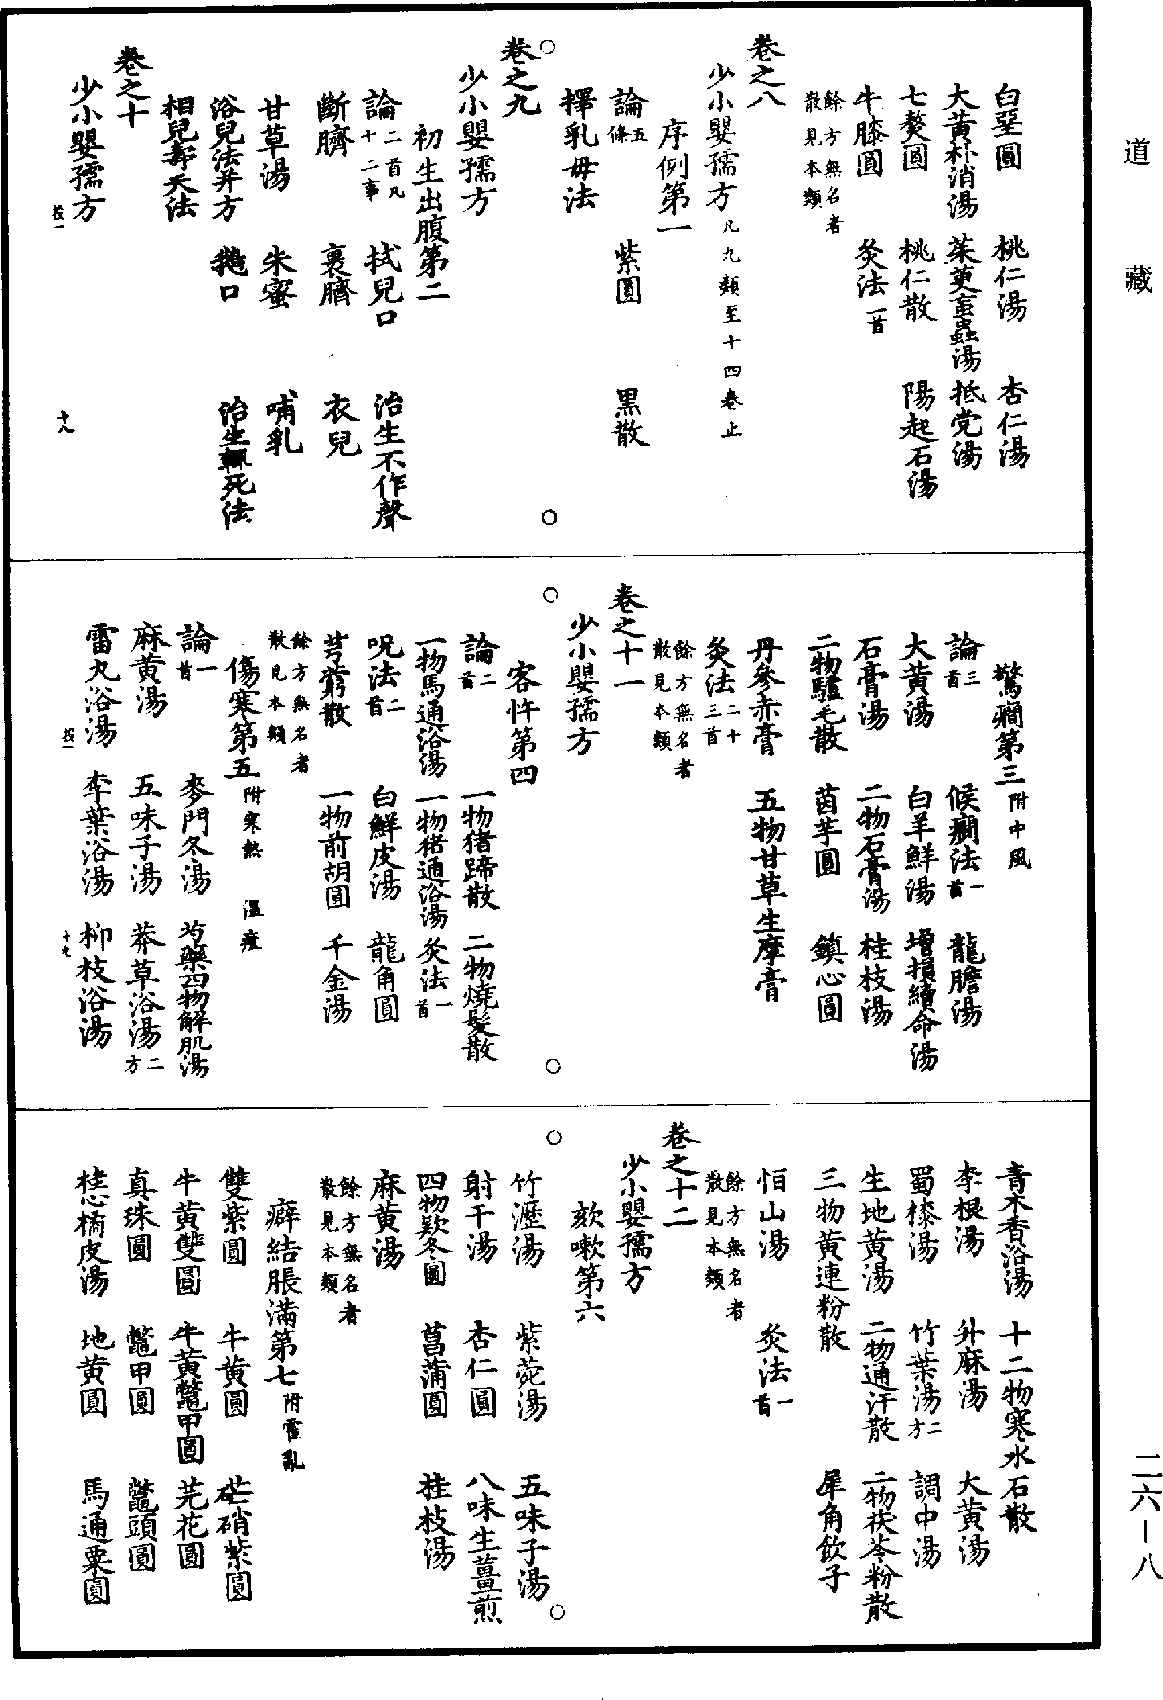 道藏
白堊圓　桃仁湯　杏仁湯
大黃朴消湯　茱萸䖟蟲湯　抵党湯
七熬圓　桃仁散　陽起石湯
牛膝圓　灸法一首
餘方無名者
散見本類
卷之八
少小嬰孺方凡九類至十四卷止
序例第一
論五條　紫圓　黑散
擇乳母法
卷之九
少小嬰孺方
初生出腹第二
論二首凡十二事　拭兒口　治生不作聲
斷臍　裹臍　衣兒
甘草湯　朱蜜　哺乳
浴兒法并方　口　治生輒死法
相兒壽夭法
卷之十
少小嬰孺方
投一　十八
驚癇第三附中風
論三首　候癇法一首　龍膽湯
大黃湯　白羊鮮湯　增損續命湯
石膏湯　二物石膏湯　桂枝湯
二物驢毛散　茵芋圓　鎮心圓
丹參赤膏　五物甘草生摩膏
灸法二十三首
餘方無名者
散見本類
卷之十一
少小嬰孺方
客忤第四
論二首　一物猪蹄散　二物燒髮散
一物馬通浴湯　一物猪通浴湯　灸法一首
呪法二首　白鮮皮湯　龍角圓
芎藭散　一物前胡圓　千金湯
餘方無名者
散見本類
傷寒第五附寒熱　溫瘧
論一首　麥門冬湯　芍藥四物解肌湯
麻黃湯　五味子湯　莽草浴湯二方
雷丸浴湯　李葉浴湯　柳枝浴湯
投一　十九
青木香浴湯　十二物寒水石散
李根湯　升麻湯　大黃湯
蜀漆湯　竹葉湯二方　調中湯
生地黃湯　二物通汗散　二物茯苓粉散
三物黃連粉散　犀角飲子
恒山湯　灸法一首
餘方無名者
散見本類
卷之十二
少小嬰孺方
欬嗽第六
竹瀝湯　紫菀湯　五味子湯
射干湯　杏仁圓　八味生薑煎
四物欵冬圓　菖蒲圓　桂枝湯
麻黃湯
餘方無名者
散見本類
癖結脹滿第七附霍亂
雙紫圓　牛黃圓　芒硝紫圓
牛黃雙圓　牛黃鼈甲圓　芫花圓
真珠圓　鼈甲圓　鼈頭圓
桂心橘皮湯　地黃圓　馬通粟圓
二六—八